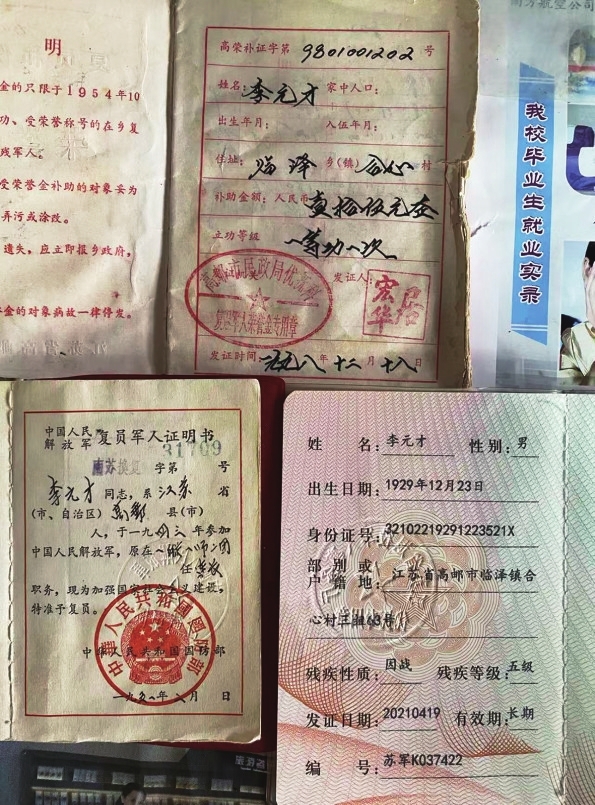 明
金的只限于1954年10
功、受荣誉称号的在乡复
残军人。
受荣誉金补助的对象妥为
弄污或涂改。
遗失，应立即报乡政府，
金的对象病故一律停发。
高荣补证字第9801001202号
姓名：李元才 家中人口：
出生年月： 入伍年月：
住址：临泽乡(镇)合心村
补助金额：人民币壹拾伍元
立功等级 一等功一次
高邮市民政局优抚科
复退军人荣誉金专用章
发证人：
发证时间：一九九八年十二月十八日
南方航空公司
我校毕业生就业实录
中国人民解放军复员军人证明书
31709
字第 号
李元才同志，系江苏省
(市、自治区)高邮县(市)
人，于一九四三年参加
中国人民解放军，原在
职务，现为加强国家社会主义建设，
特准予复员。
中华人民共和国国防部
中华人民共和国国防部
月 日
姓 名：李元才 性别：男
出生日期：1929年12月23日
身份证号：32102219291223521X
部别或户籍地：江苏省高邮市临泽镇合
心村三组63号
残疾性质：因战 残疾等级：五级
发证日期：20210419 有效期：长期
编 号：苏军K037422